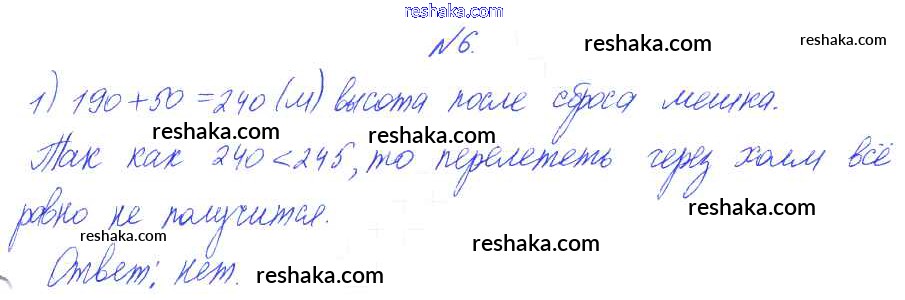 reshaka.com
№6.
reshaka.com
reshaka.com
1) 190+50=240 (м) высота после сброса мешка.
reshaka.com
reshaka.com
reshaka.com
Так как 240<245, то перелететь через холм всё
равно не получится.
reshaka.com
reshaka.com
reshaka.com
reshaka.com
Ответ: нет.
reshaka.com
reshaka.com